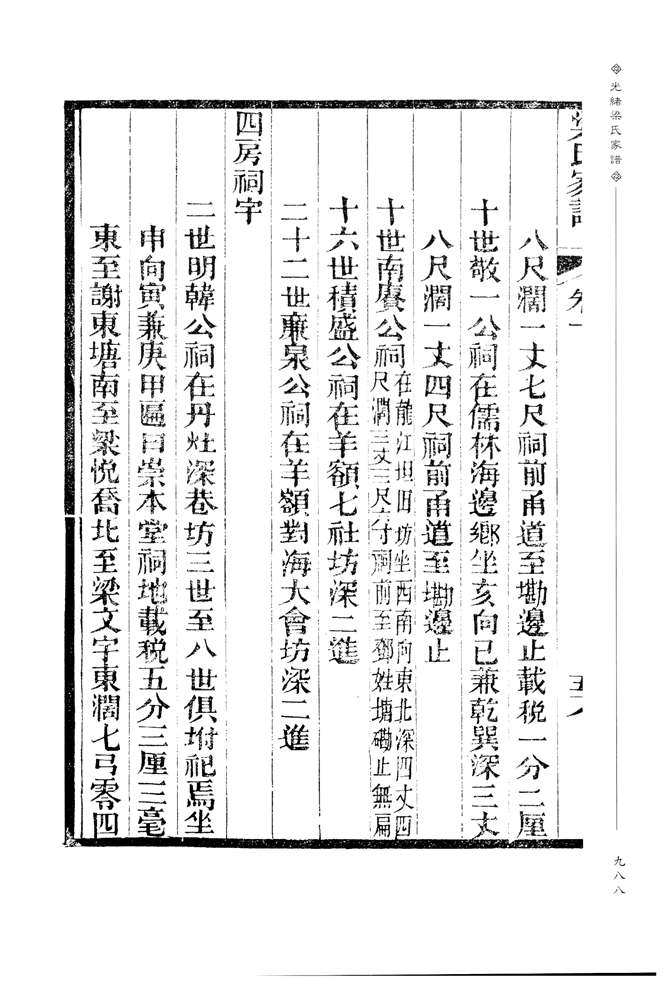 光緒梁氏家譜
梁氏家譜 卷一 五八
八尺濶一丈七尺祠前甬道至墈邊止載税一分二厘
十世敬一公祠在儒林海邊鄉坐亥向巳兼乾巽深三丈
八尺濶一丈四尺祠前甬道至墈邊止
十世南賡公祠在龍江坦田坊坐西南向東北深四丈四
尺濶三丈三尺六寸祠前至鄧姓塘磡止無扁
十六世積盛公祠在羊額七社坊深二進
二十二世亷泉公祠在羊額對海大會坊深二進
四房祠宇
二世明韓公祠在丹灶深巷坊三世至八世俱坿祀焉坐
申向寅兼庚甲匾曰崇本堂祠地載税五分三厘三毫
東至謝東塘南至梁悦喬北至梁文宇東濶七弓零四
九八八